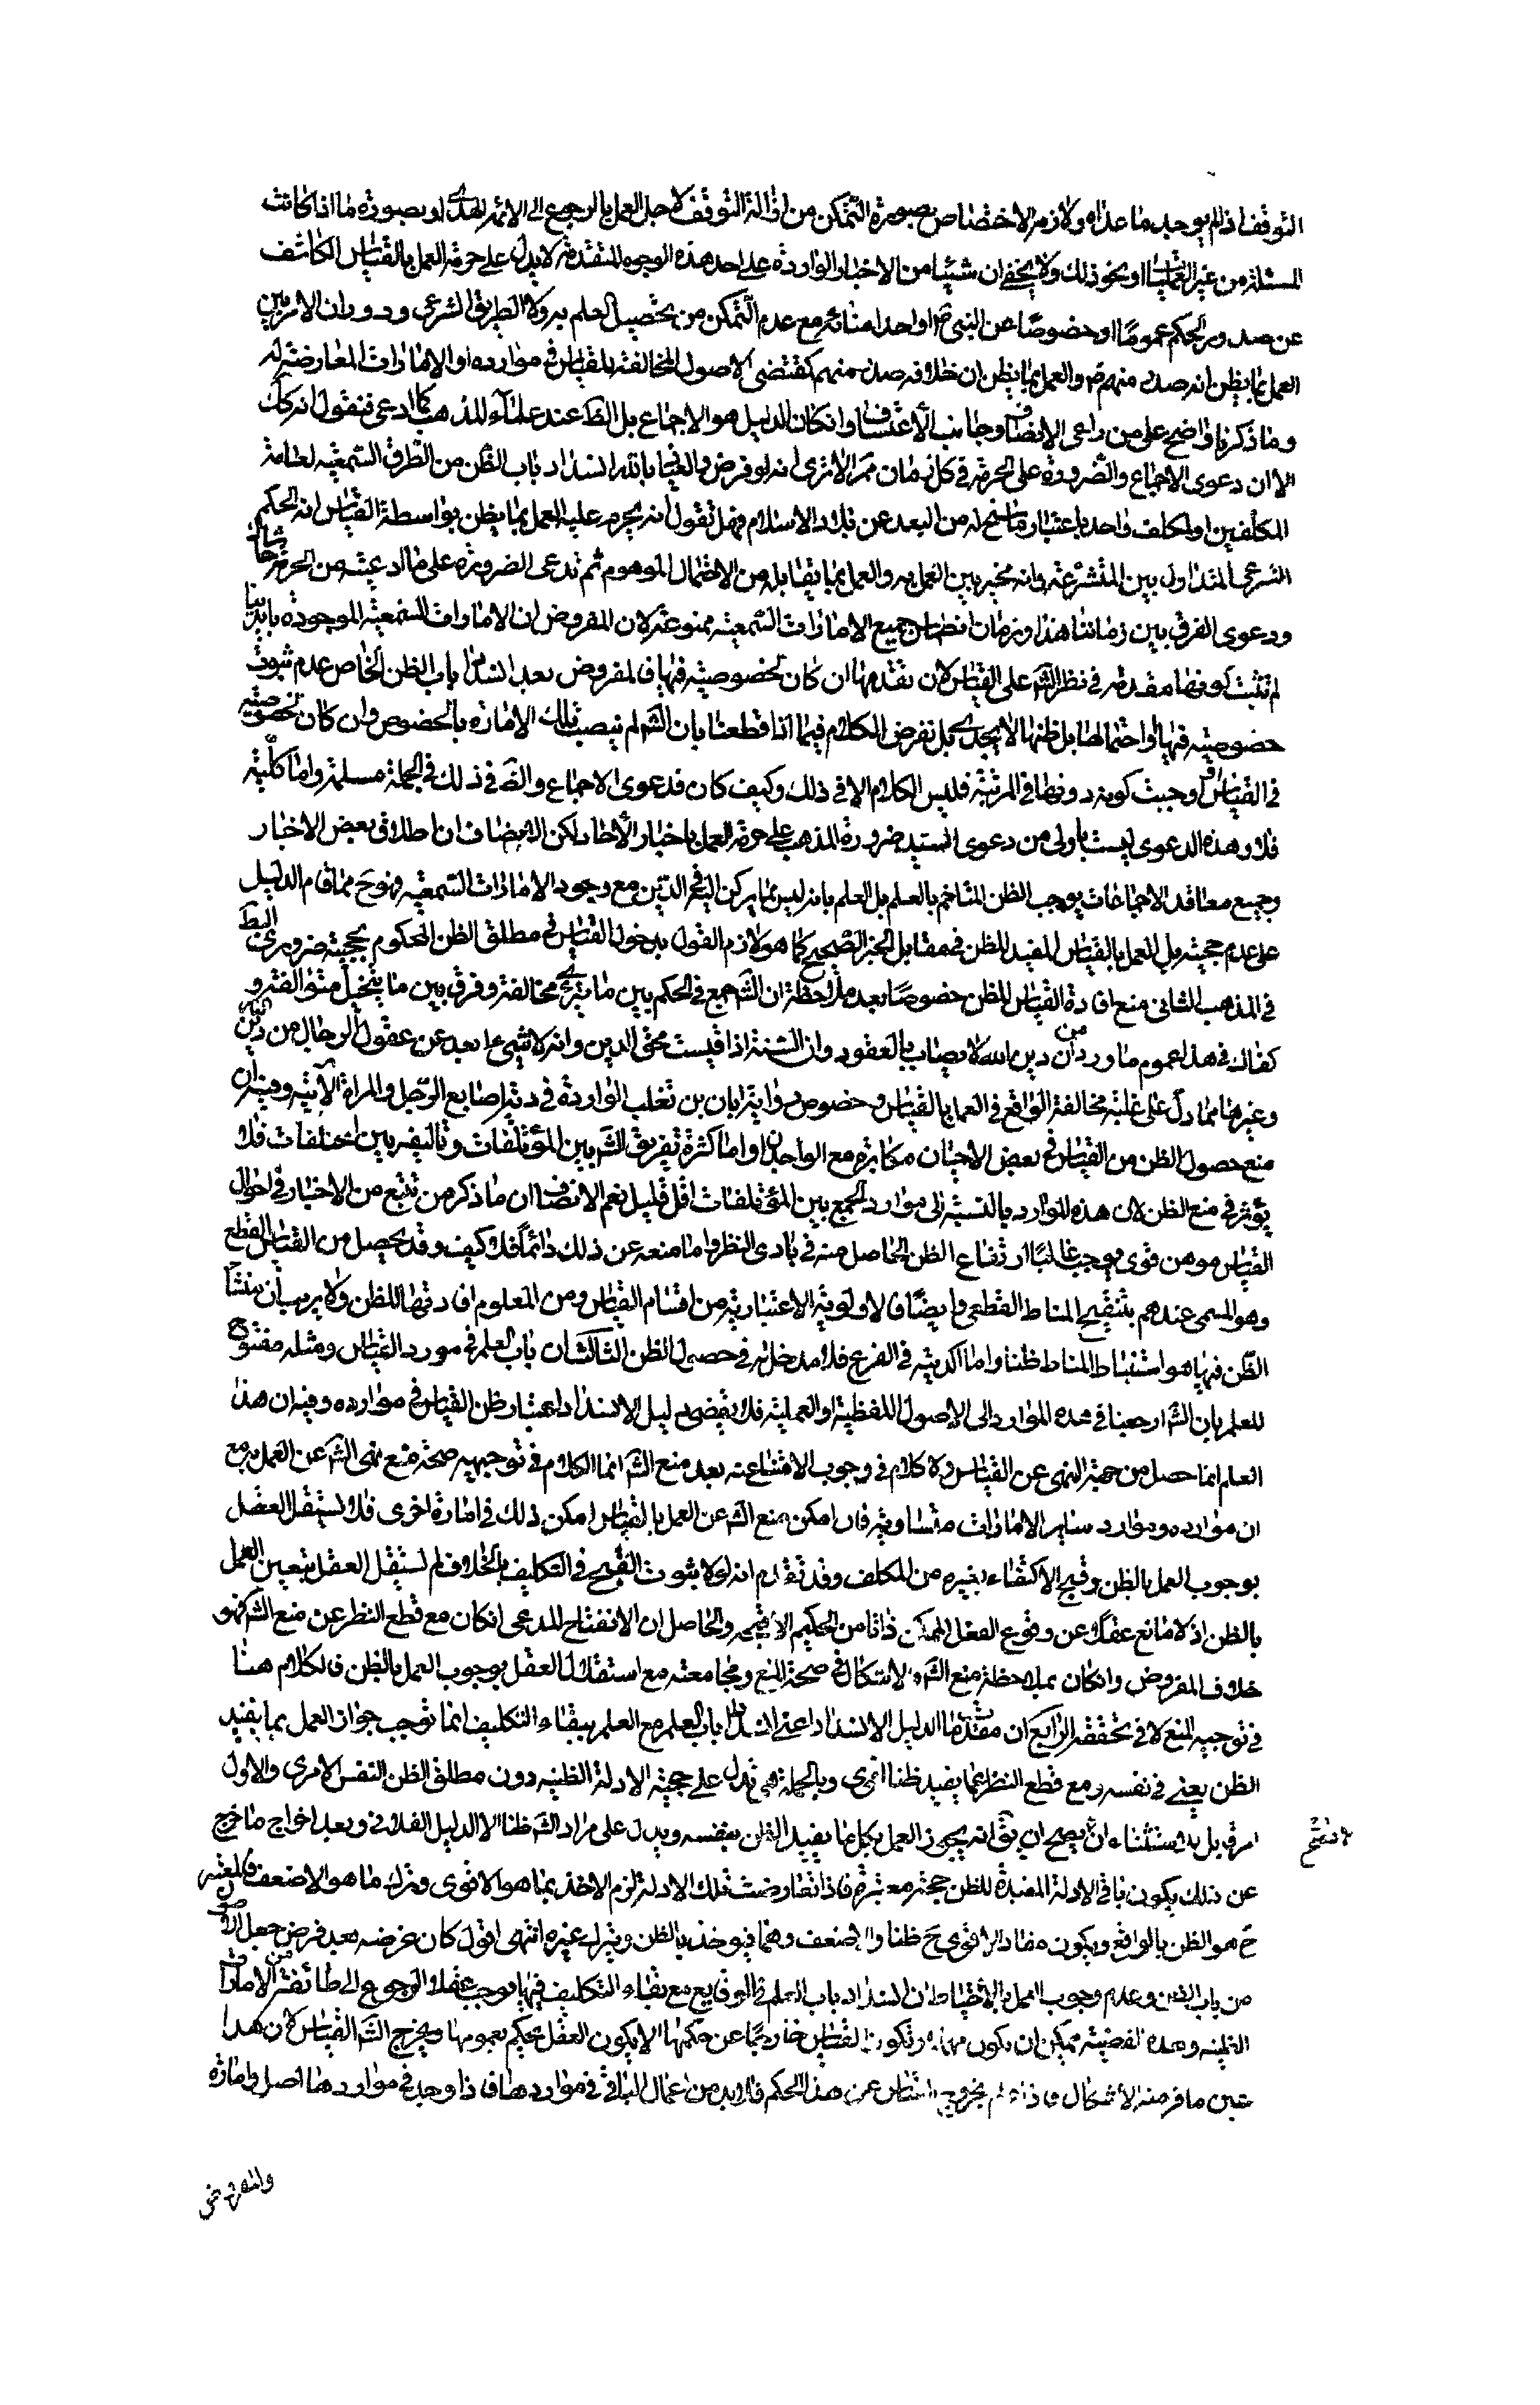 التوقف اذا لم يوجد ما عداه ولازمه الاختصاص بصورة التمكن من ازالة التوقف لاجل العمل بالرجوع الى الائمة الهدى او بصورة ما اذا كانت
المسئلة من غير العمليات او نحو ذلك ولا يخفى ان شيئا من الاخبار الواردة على احد هذه الوجوه المتقدمة لا يدل على حرمة العمل بالقياس الكاشف
عن صدور الحكم عموما او خصوصا عن النبى ص او احد امنائه مع عدم التمكن من تحصيل العلم به ولا الطريق الشرعى ودوران الامر بين
العمل بما يظن انه صدر منهم ع والعمل بما يظن ان خلافه صدر منهم كمقتضى الاصول المخالفة للقياس فى موارده او الامارات المعارضة له
وما ذكرنا واضح على من راعى الانصاف وجانب الاعتساف وان كان الدليل هو الاجماع بل الضرورة عند علماء المذهب كما ادعى فنقول انه كك
الا ان دعوى الاجماع والضرورة على الحرمة فى كل زمان ممنوعة الا ترى انه لو فرض والعياذ بالله انسداد باب الظن من الطرق السمعية لعامة
المكلفين او لمكلف واحد باعتبار ما سنح له من البعد عن بلاد الاسلام فهل تقول انه يحرم عليه العمل بما يظن بواسطة القياس انه الحكم
الشرعى المتداول بين المتشرعة وانه مخير بين العمل به والعمل بما يقابله من الاحتمال الموهوم ثم تدعى الضرورة على ما ادعيته من الحرمة حاشاك
ودعوى الفرق بين زماننا هذا وزمان انطماس جميع الامارات السمعية ممنوعة لان المفروض ان الامارات السمعية الموجودة بايدينا
لم تثبت كونها مقدمة فى نظر الش على القياس لان تقدمها ان كان لخصوصية فيها فالمفروض بعد انسداد باب الظن الخاص عدم ثبوت
خصوصية فيها واحتمالها بل ظنها لا يجدى بل نفرض الكلام فيما اذا قطعنا بان الش لم ينصب تلك الامارة بالخصوص وان كان لخصوصية
فى القياس اوجبت كونه دونها فى المرتبة فليس الكلام الا فى ذلك وكيف كان فدعوى الاجماع والض فى ذلك فى الجملة مسلمة واما كلية
فلا وهذه الدعوى ليست باولى من دعوى السيد ضرورة المذهب على حرمة العمل باخبار الاحاد لكن الانصاف ان اطلاق بعض الاخبار
وجميع معاقد الاجماعات يوجب الظن المتاخم بالعلم بل العلم بانه ليس مما يركن اليه فى الدين مع وجود الامارات السمعية فهو ح مما قام الدليل
على عدم حجيته بل العمل بالقياس المفيد للظن فى مقابل الخبر الصحيح كما هو لازم القول بدخول القياس فى مطلق الظن المحكوم بحجيته ضرورى البط
فى المذهب الثانى منع افادة القياس للظن خصوصا بعد ملاحظة ان الش جمع فى الحكم بين ما يترائى مخالفة وفرق بين ما يتخيل متوالفة و
كفاك فى هذا عموم ما ورد من ان دين الله لا يصاب بالعقول وان السنة اذا قيست محق الدين وانه لا شىء ابعد عن عقول الرجال من دين الله
وغيرها مما دل على غلبة مخالفة الواقع فى العمل بالقياس وخصوص رواية ابان بن تغلب الواردة فى دية اصابع الرجل والمراة الآتية وفيه ان
منع حصول الظن من القياس فى بعض الاحيان مكابرة مع الوجدان واما كثرة تفريق الش بين المؤتلفات وتاليفه بين المختلفات فلا
يؤثر فى منع الظن لان هذه الموارد بالنسبة الى موارد الجمع بين المؤتلفات اقل قليل نعم الانصاف ان ما ذكر من تتبع من الاخبار فى احوال
القياس موهن قوى يوجب غالبا ارتفاع الظن الحاصل منه فى بادى النظر واما منعه عن ذلك دائما فلا كيف وقد يحصل من القياس القطع
وهو المسمى عندهم بتنقيح المناط القطعى وايضا فالاولوية الاعتبارية من اقسام القياس ومن المعلوم افادتها للظن ولا ريب ان منشأ
الظن فيها هو استنباط المناط ظنا واما اكديته فى الفرع فلا مدخل له فى حصول الظن الثالث ان باب العلم فى مورد القياس ومثله مفتوح
للعلم بان الش ارجعنا فى هذه الموارد الى الاصول اللفظية او العملية فلا يقضى دليل الانسداد اعتبار ظن القياس فى موارده وفيه ان هذا
العلم انما حصل من جهة النهى عن القياس ولا كلام فى وجوب الامتناع عنه بعد منع الش انما الكلام فى توجيه صحة منع نهى الش عن العمل به مع
ان موارده وموارد ساير الامارات متساوية فان امكن منع الش عن العمل بالقياس امكن ذلك فى امارة اخرى فلا يستقل العقل
بوجوب العمل بالظن وقبح الاكتفاء بغيره من المكلف وقد تقدم انه لولا ثبوت القبح فى التكليف بالخلاف لم يستقل العقل بتعين العمل
بالظن اذ لا مانع عقلا عن وقوع الفعل الممكن ذاتا من الحكيم الا قبحه والحاصل ان الانفتاح المدعى ان كان مع قطع النظر عن منع الش فهو
خلاف المفروض وان كان بملاحظة منع الش فالاشكال فى صحة المنع ومجامعته مع استقلال العقل بوجوب العمل بالظن فالكلام هنا
فى توجيه المنع لا فى تحققه الرابع ان مقدمات الدليل الانسداد اعنى انسداد باب العلم مع العلم ببقاء التكليف انما توجب جواز العمل بما يفيد
الظن يعنى فى نفسه ومع قطع النظر عما يفيد ظنا اقوى وبالجملة هى تدل على حجية الادلة الظنية دون مطلق الظن النفس الامرى والاول
امر قابل للاستثناء اذ يصح ان يق انه يجوز العمل بكل ما يفيد الظن بنفسه ويدل على مراد الش ظنا الا الدليل الفلانى وبعد اخراج ما خرج
عن ذلك يكون باقى الادلة المفيدة للظن حجة معتبرة فاذا تعارضت تلك الادلة لزم الاخذ بما هو الاقوى وترك ما هو الاضعف فالمعتبر
ح هو الظن بالواقع ويكون مفاد الاقوى ح ظنا والاضعف وهما فيؤخذ بالظن ويترك غيره انتهى اقول كان غرضه بعد فرض جعل الاصول
من باب الظن وعدم وجوب العمل بالاحتياط ان انسداد باب العلم فى الوقايع مع بقاء التكليف فيها يوجب عقلا الرجوع الى طائفة من الامارات
الظنية وهذه القضية يمكن ان تكون مهملة وتكون القياس خارجا عن حكمها لا يكون العقل يحكم بعمومها ويخرج الش القياس لان هذا
عين ما فر منه الاشكال فاذا علم بخروج القياس عن هذا الحكم فلابد من اعمال الباقى فى مواردها فاذا وجد فى مواردها اصل وامارة